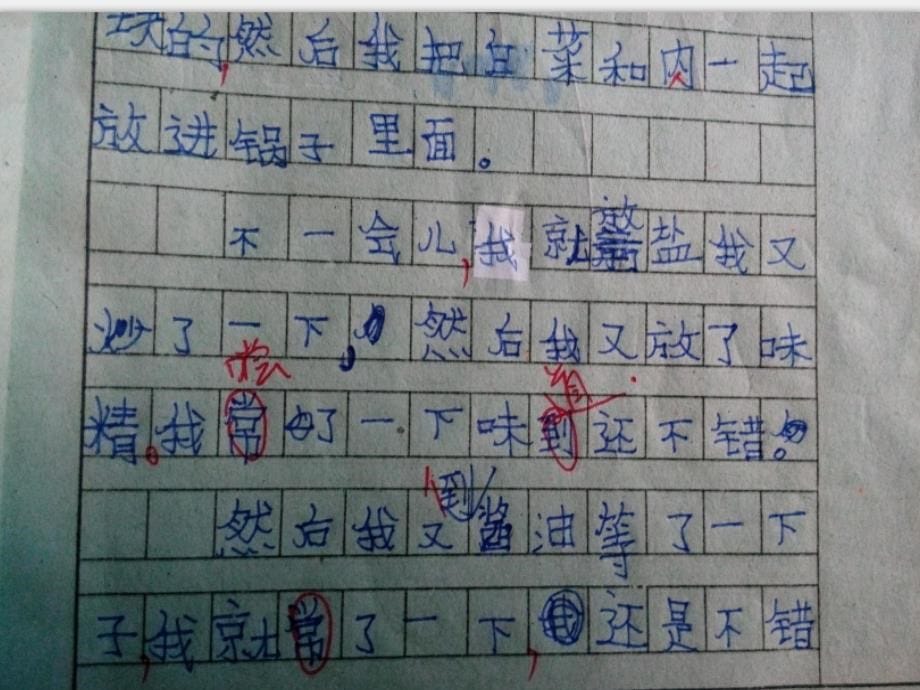 块的，然后我把白菜和肉一起
放进锅子里面。
不一会儿，我就放盐我又
炒了一下，然后我又放了味
尝
精。我常了一下味到还不错。
到
然后我又酱油等了一下
子，我就常了一下，还是不错